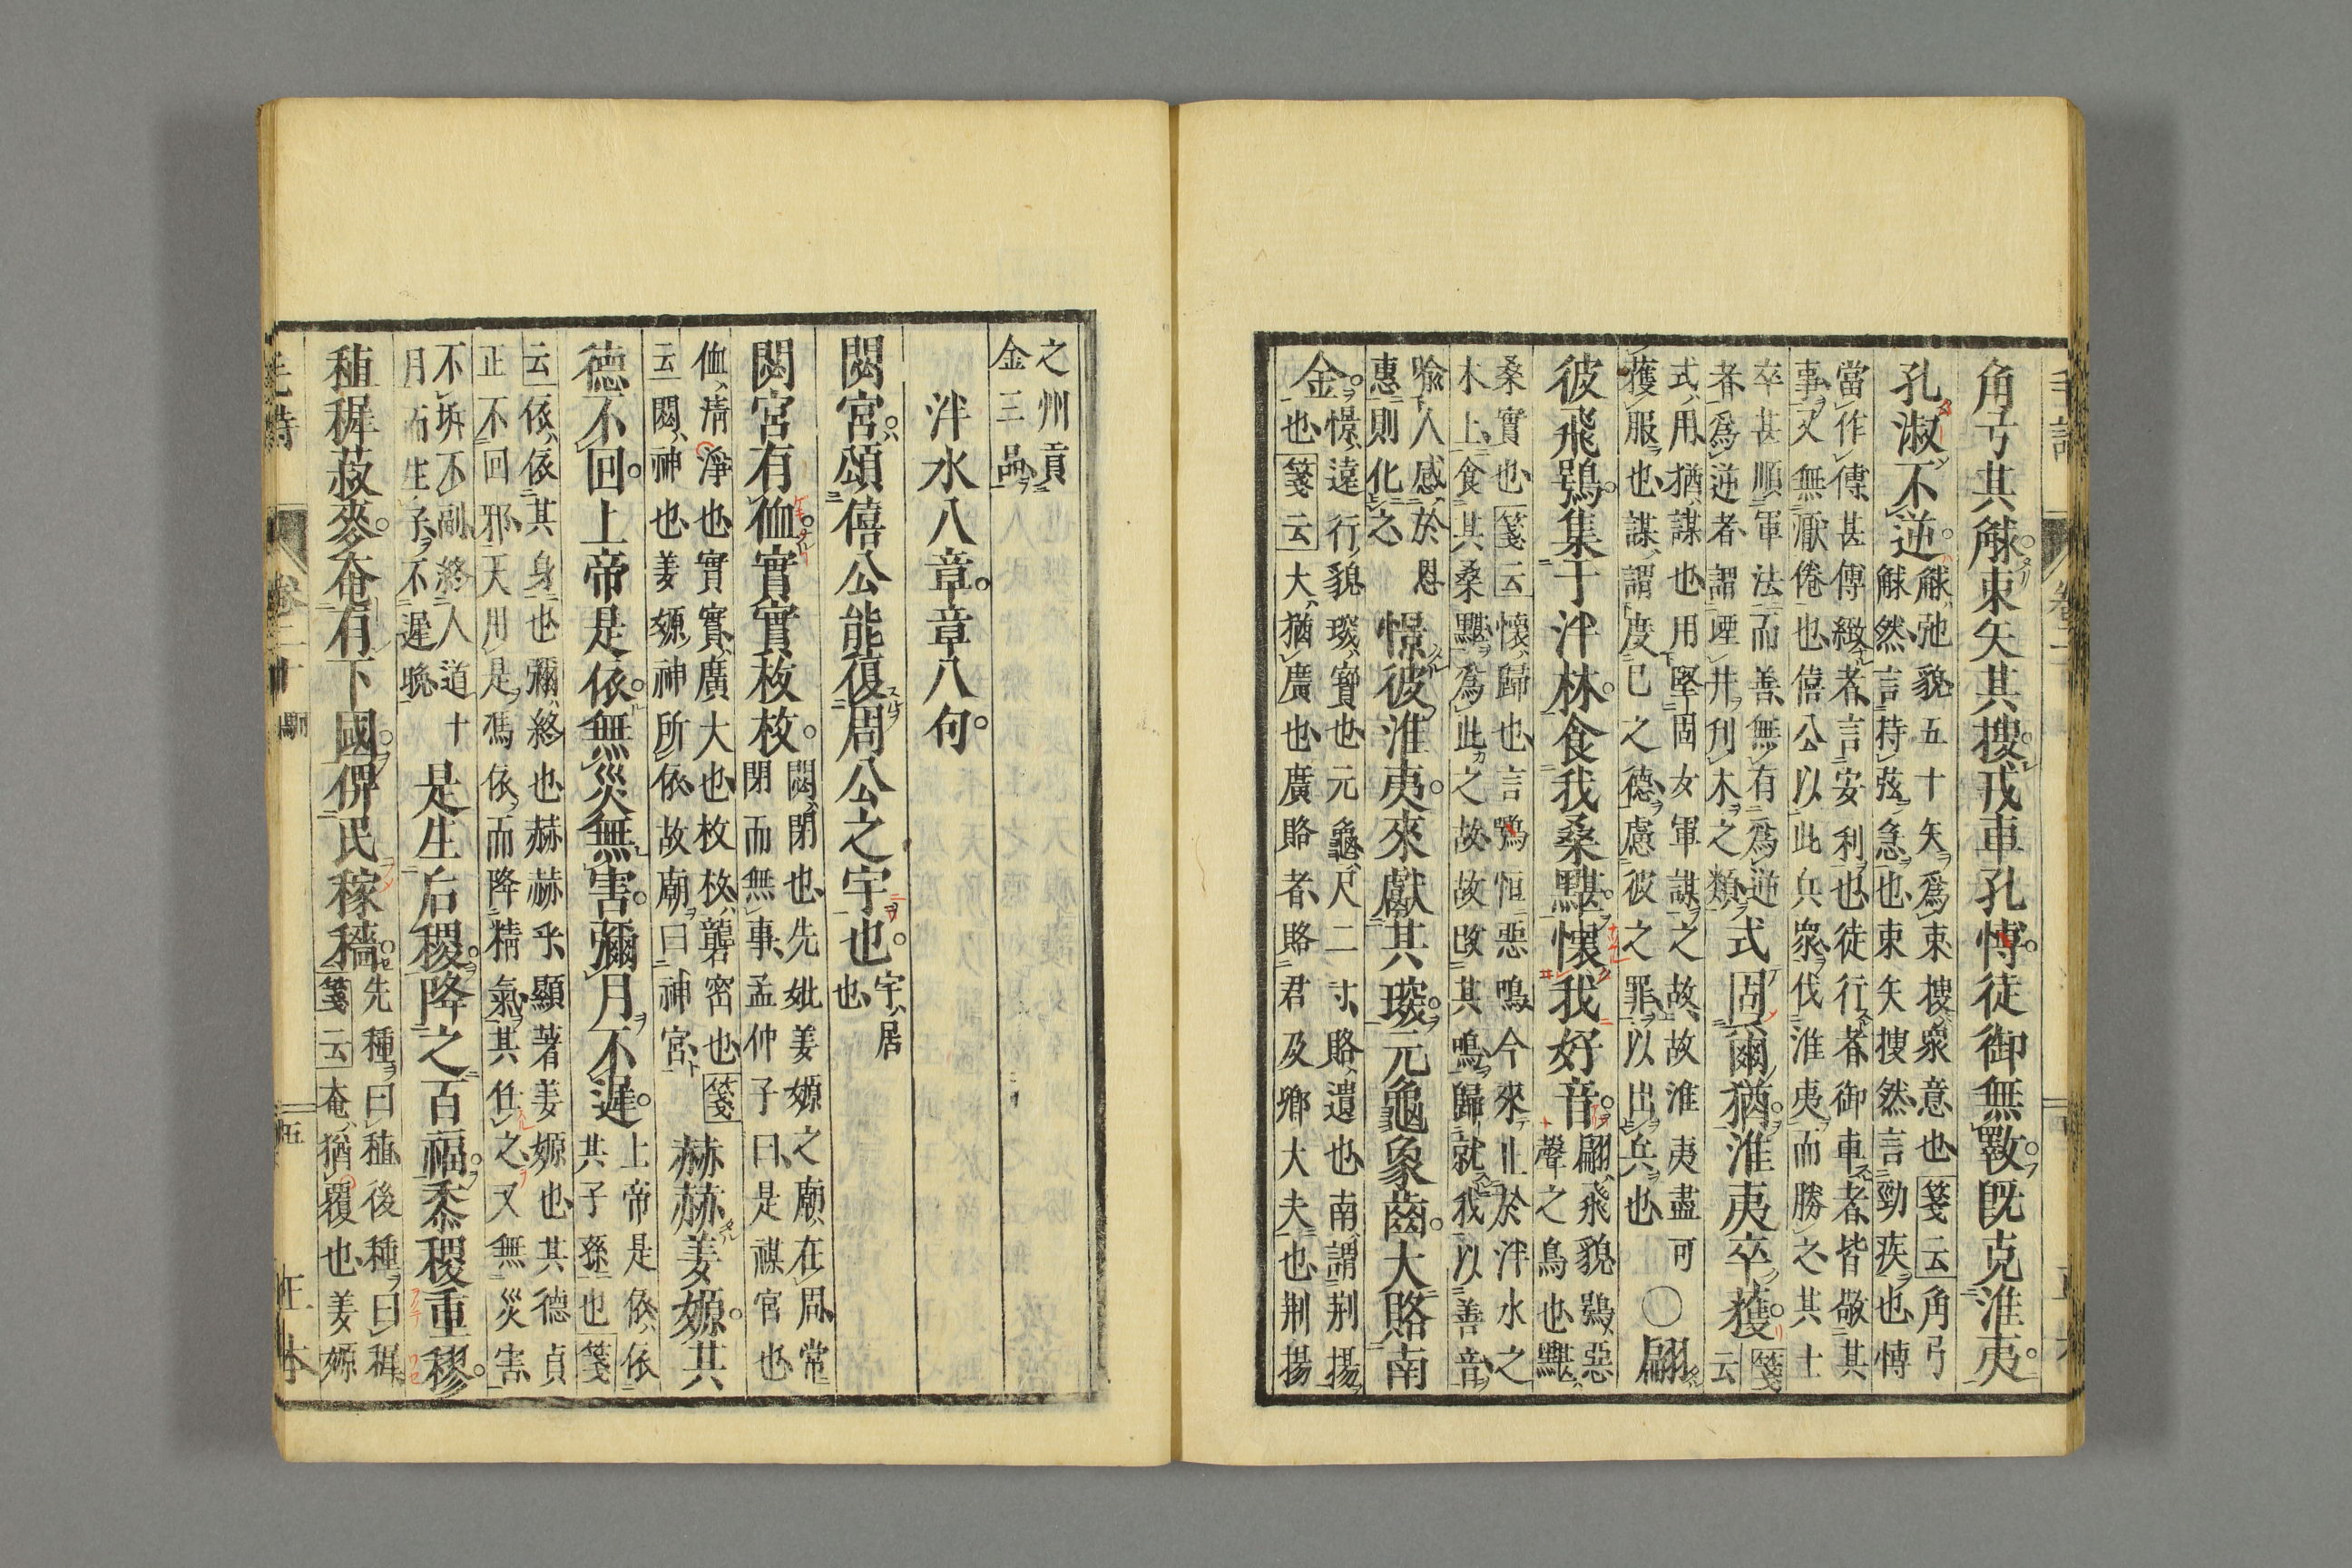 角弓其觩束矢其搜戎車孔博徒御無斁既克淮夷
孔淑不逆
觩弛貌五十矢爲束搜衆意也箋云角弓
觩然言持弦急也束矢搜然言勁疾也博
當作傅甚傅緻者言安利也徒行者御車者皆敬其
事又無厭倦也僖公以此兵衆伐淮夷而勝之其士
卒甚順軍法而善無有爲逆
者爲逆者謂堙井刊木之類
式固爾猶淮夷卒獲
箋
云
式用猶謀也用堅固女軍謀之故故淮夷盡可
獲服也謀謂度己之德慮彼之罪以出兵也
〇翩
彼飛鴞集于泮林食我桑黮懷我好音
翩飛貌鴞惡
聲之鳥也黮
桑實也箋云懷歸也言鴞恒惡鳴今來止於泮水之
木上食其桑黮爲此之故故改其鳴歸就我以善音
喩人感於恩
惠則化之
憬彼淮夷來獻其琛元龜象齒大賂南
金
憬遠行貌琛寶也元龜尺二寸賂遺也南謂荆揚
也箋云大猶廣也廣賂者賂君及鄉大夫也荆揚
之州貢
金三品
泮水八章章八句
閟宮頌僖公能復周公之宇也
宇居
也
閟宮有侐實實枚枚
閟閉也先妣姜嫄之廟在周常
閉而無事孟仲子曰是禖宮也
侐清淨也實實廣大也枚枚礱密也箋
云閟神也姜嫄神所依故廟曰神宮
赫赫姜嫄其
德不回上帝是依無災無害彌月不遲
上帝是依依
其子孫也箋
云依依其身也彌終也赫赫乎顯著姜嫄也其德貞
正不回邪天用是馮依而降精氣其任之又無災害
不坼不副終人道十
月而生子不遲晩
是生后稷降之百福黍稷重穋
稙穉菽麥奄有下國俾民稼穡
先種曰稙後種曰穉
箋云奄猶覆也姜嫄
卷二十